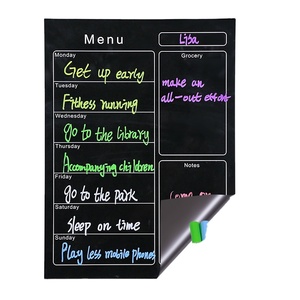 Menu
Lisa
Monday
Get up early
Tuesday
Fitness running
Wednesday
Go to the library
Thursday
Accompanying children
Friday
Go to the park
Saturday
Sleep on time
Sunday
Play less mobile phones
Grocery
make an
all-out effort
Notes